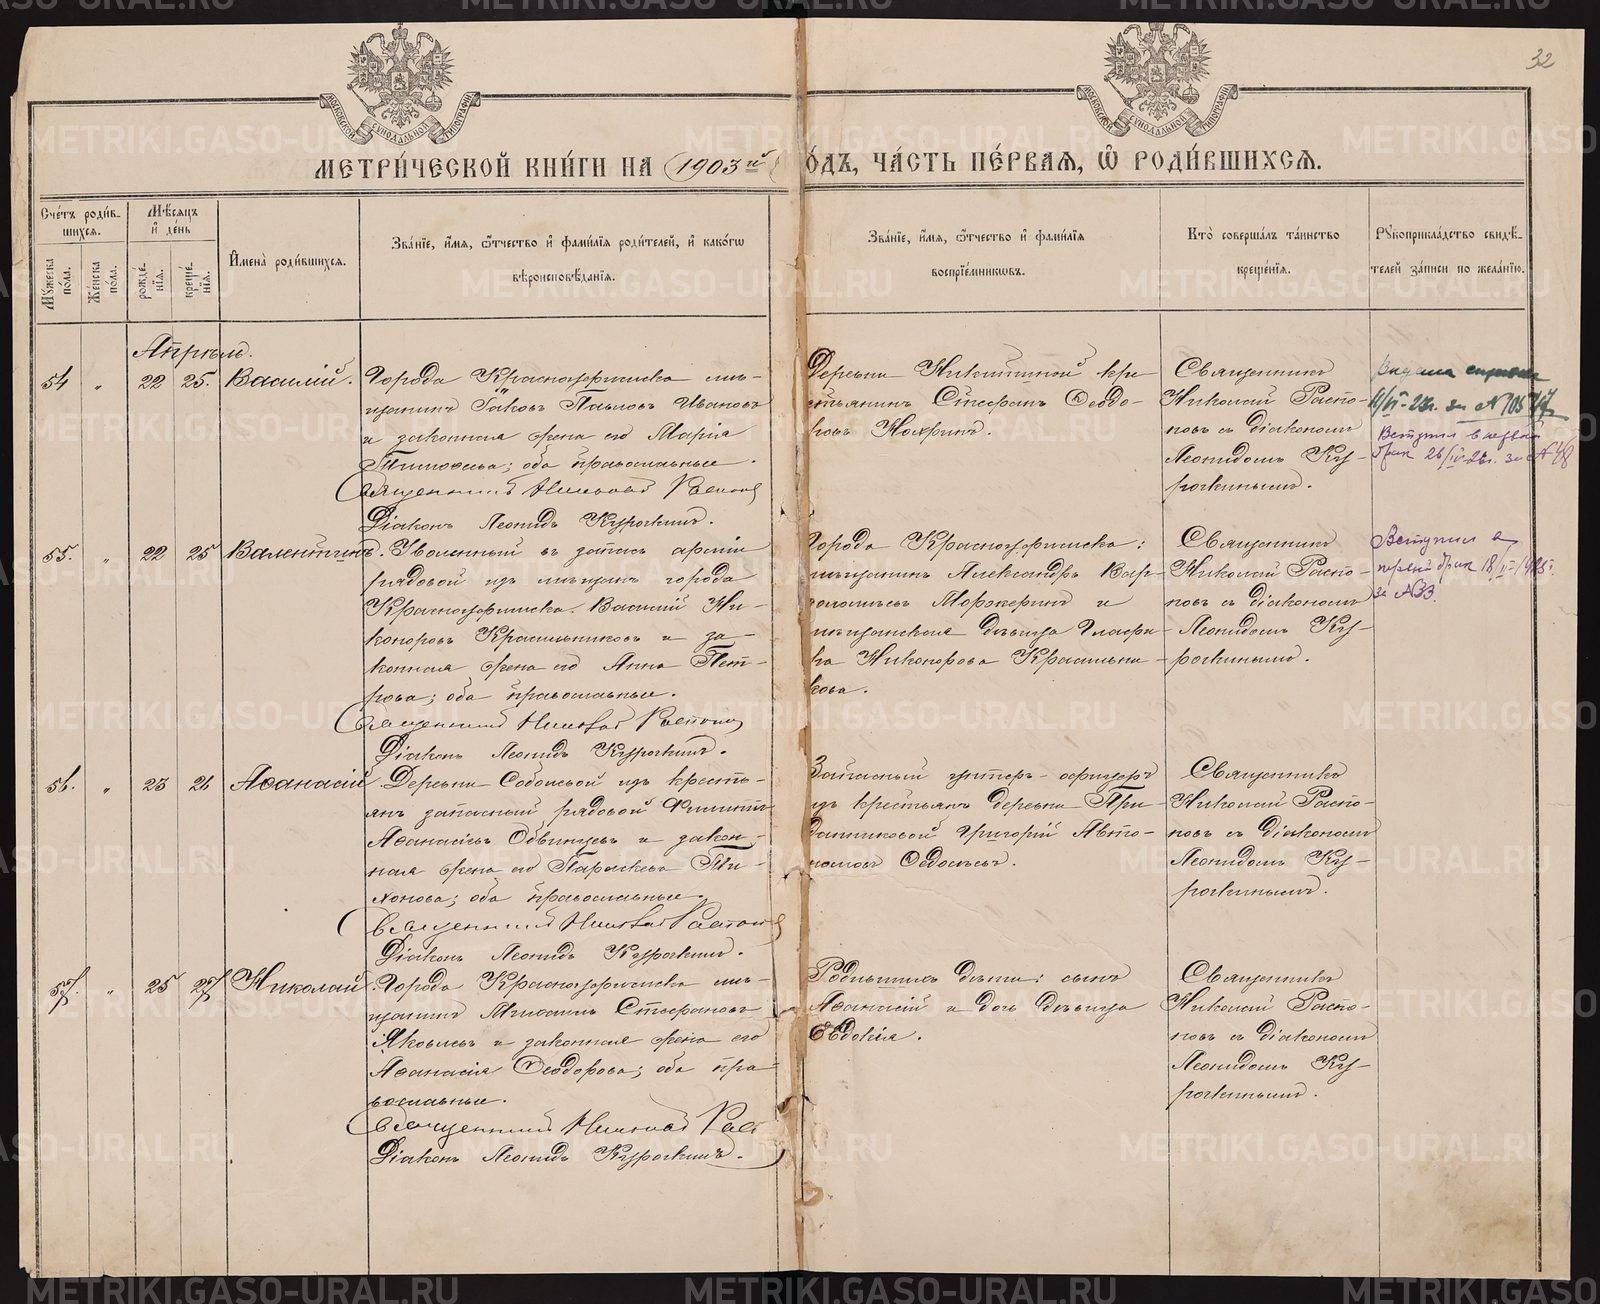 32
МОСКОВСКОЙ СУНОДАЛЬНОЙ ТИПОГРАФІИ
МОСКОВСКОЙ СУНОДАЛЬНОЙ ТИПОГРАФІИ
МЕТРИ́ЧЕСКОЙ КНИ́ГИ НА 1903й
О́ДЪ, ЧА́СТЬ ПЕ́РВАЯ, Ѽ РОДИ́ВШИХСЯ.
Сче́тъ роди́в-
шихся.
Мꙋжеска
по́ла.
Же́нска
по́ла.
Мѣ́сяцъ
и҆ де́нь
рожде́-
нїя.
креще́-
нїя.
И҆мена̀ роди́вшихся.
Зва́нїе, и҆́мя, ѻ҆́тчество и҆ фами́лїя роди́телей, и҆ како́гѡ
вѣроисповѣ́данїя.
Зва́нїе, и҆́мя, ѻ҆́тчество и҆ фами́лїя
воспрїе́мниковъ.
Кто̀ соверша́лъ та́инство
креще́нїя.
Рꙋкоприкла́дство свидѣ́-
телей за́писи по жела́нїю.
Апрѣль.
54 " 22 25. Василій.
Города Красноуфимска мѣ-
щанинъ Іаковъ Павловъ Ивановъ
и законная жена его Марія
Тимоѳеева; оба православные.
Священникъ Николай Распоповъ
Діаконъ Леонидъ Курочкинъ.
Деревни Никитиной кре
стьянинъ Стефанъ Ѳеодо-
ровъ
Священникъ
Николай Распо-
повъ съ діакономъ
Леонидомъ Ку-
рочкинымъ.
Выдана справка
Вступил в первый
брак
55. " 22 25 Валентинъ.
Уволенный въ запасъ арміи
рядовой изъ мѣщанъ города
Красноуфимска Василій Ни-
коноровъ Красильниковъ и за-
конная жена его Анна Пет-
рова; оба православные.
Священникъ Николай Распоповъ
Діаконъ Леонидъ Курочкинъ.
Города Красноуфимска:
мѣщанинъ Александръ Вар-
ѳоломѣевъ и
мѣщанская дѣвица Глафи-
ра Никонорова Красильни-
кова.
Священникъ
Николай Распо-
повъ съ діакономъ
Леонидомъ Ку-
рочкинымъ.
Вступил в
первый брак
за №33.
56. " 23 26 Аѳанасій
Деревни Соболевой изъ кресть-
янъ запасный рядовой Филиппъ
Аѳанасіевъ Обвинцевъ и закон-
ная жена его Параскева Ти-
хонова; оба православные.
Священникъ Николай Распоповъ
Діаконъ Леонидъ Курочкинъ.
Запасный унтеръ-офицеръ
изъ крестьянъ деревни При-
данниковой Григорій Авто-
номовъ
Священникъ
Николай Распо-
повъ съ діакономъ
Леонидомъ Ку-
рочкинымъ.
57. " 25 27 Николай.
Города Красноуфимска мѣ-
щанинъ Михаилъ Стефановъ
Яковлевъ и законная жена его
Аѳанасія Ѳеодорова; оба пра-
вославные.
Священникъ Николай Расп
Діаконъ Леонидъ Курочкинъ.
Родителевъ дѣти: сынъ
Аѳанасій и дочь дѣвица
Евдокія.
Священникъ
Николай Распо-
повъ съ діакономъ
Леонидомъ Ку-
рочкинымъ.
METRIKI.GASO-URAL.RU